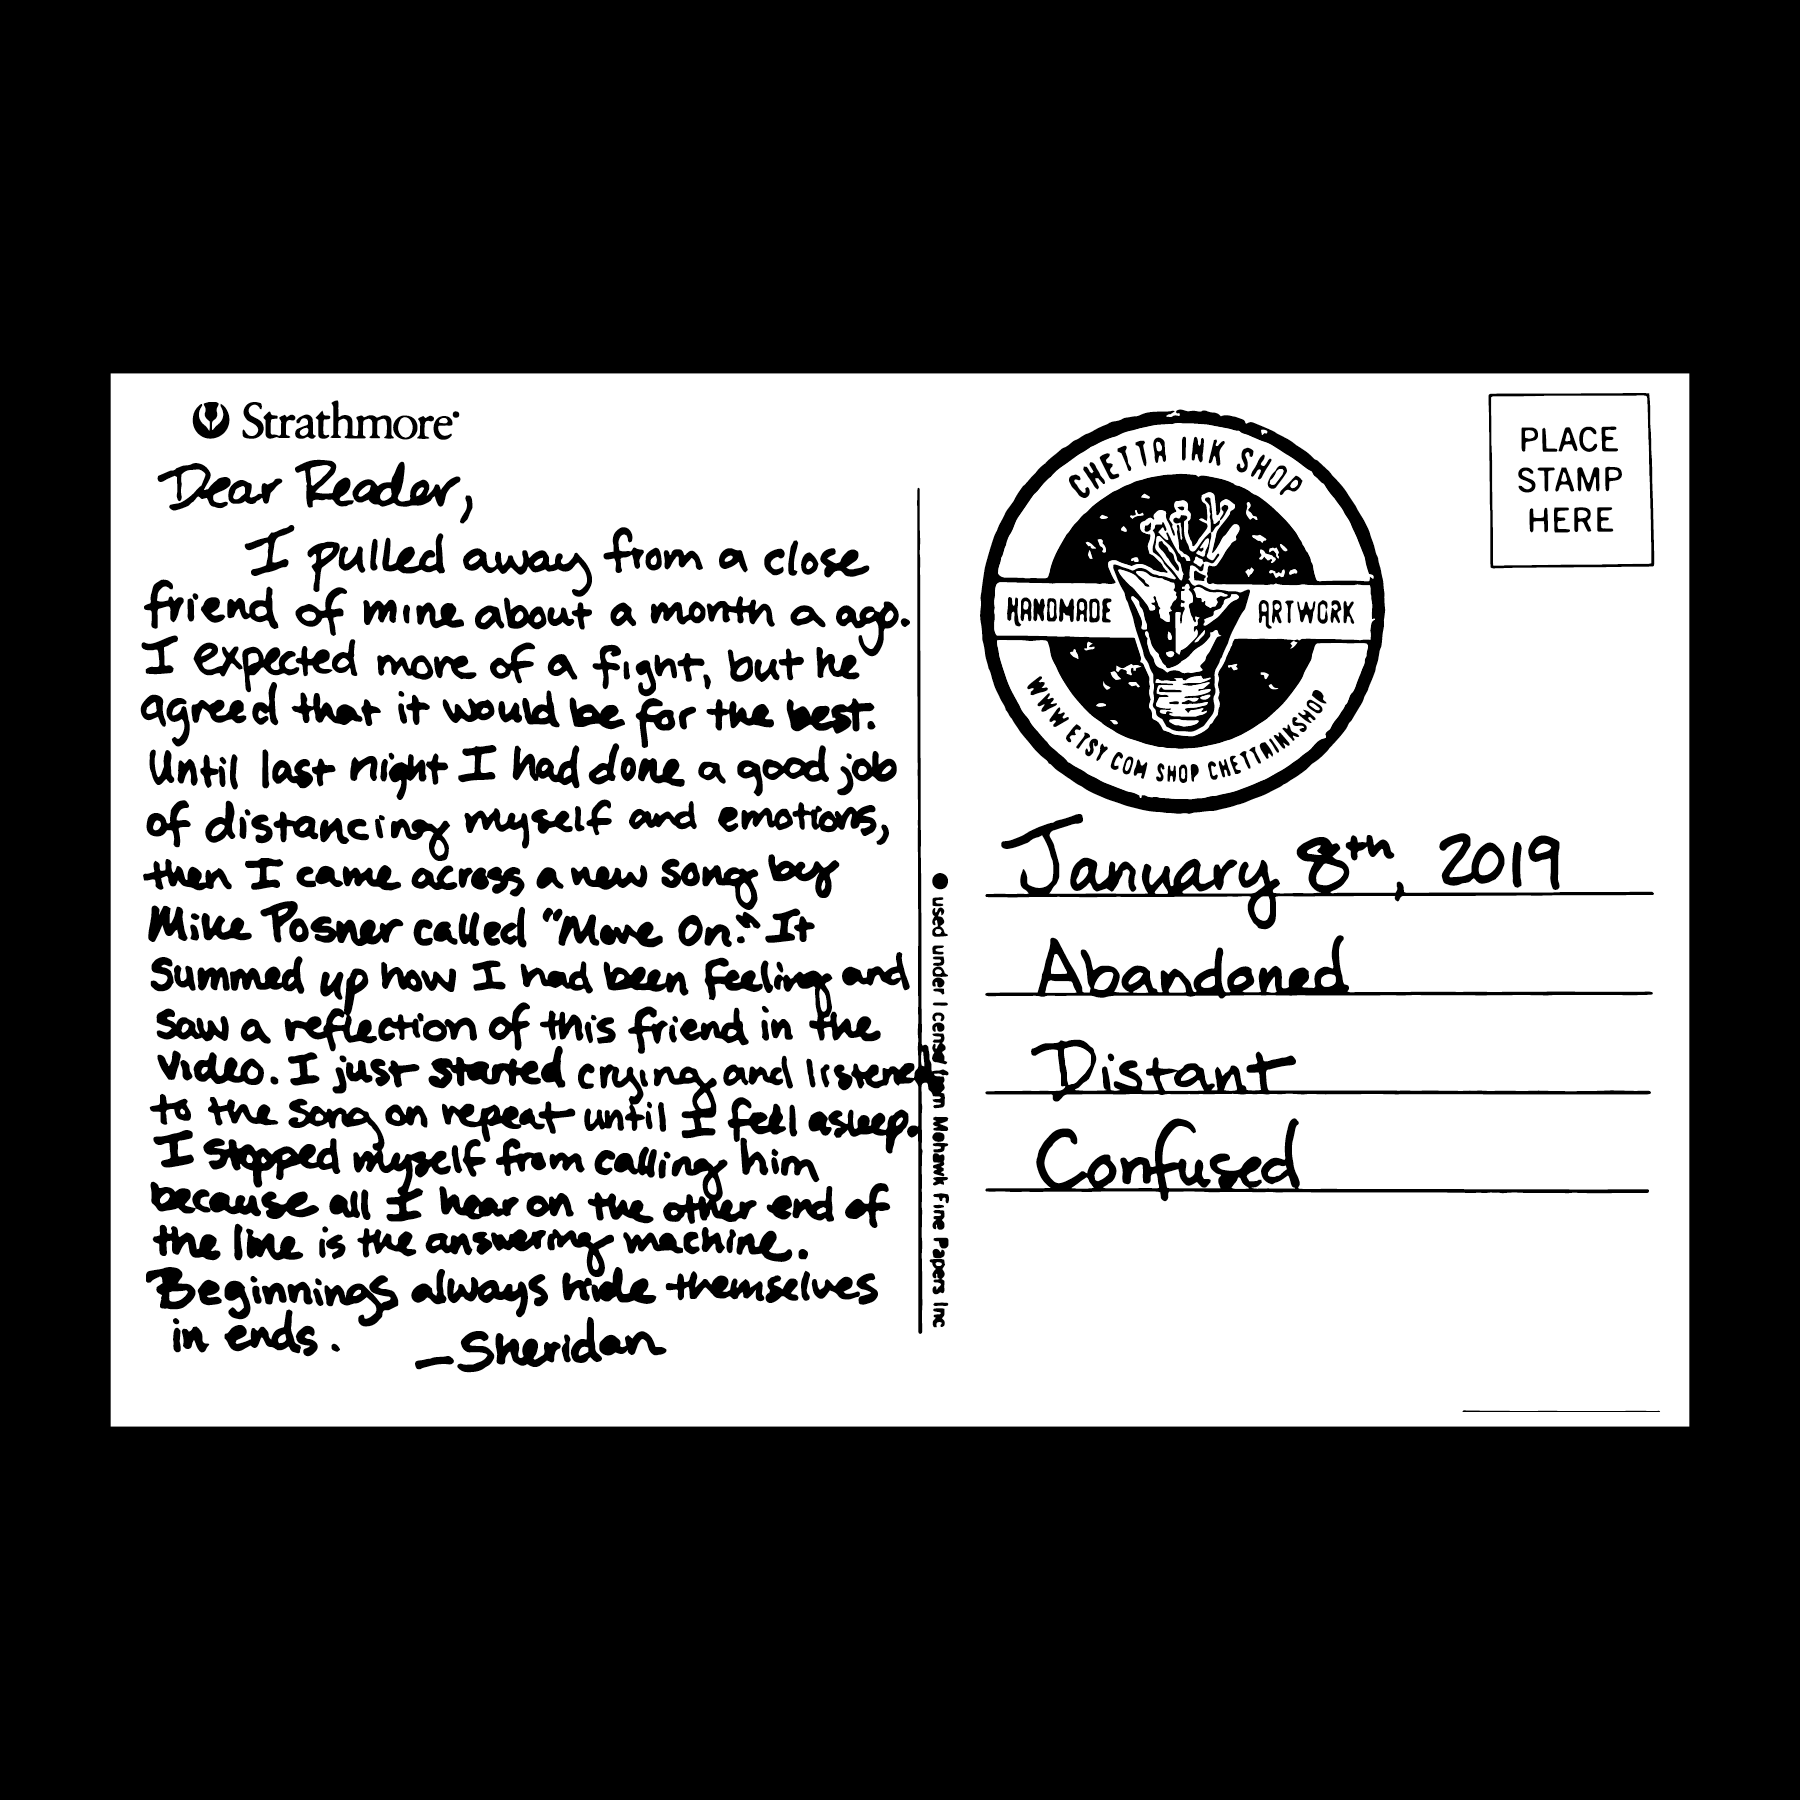 Strathmore
Dear Reader,
I pulled away from a close
friend of mine about a month a ago.
I expected more of a fight, but he
agreed that it would be for the best.
Until last night I had done a good job
of distancing myself and emotions,
then I came across a new song by
Mike Posner called "Move On." It
summed up how I had been feeling and
saw a reflection of this friend in the
video. I just started crying and listened
to the song on repeat until I fell asleep.
I stopped myself from calling him
because all I hear on the other end of
the line is the answering machine.
Beginnings always hide themselves
in ends.
—Sheridan
used under l cense from Mohawk Fine Papers Inc
CHETTA INK SHOP
HANDMADE ARTWORK
WWW ETSY COM SHOP CHETTAINKSHOP
PLACE
STAMP
HERE
January 8th, 2019
Abandoned
Distant
Confused